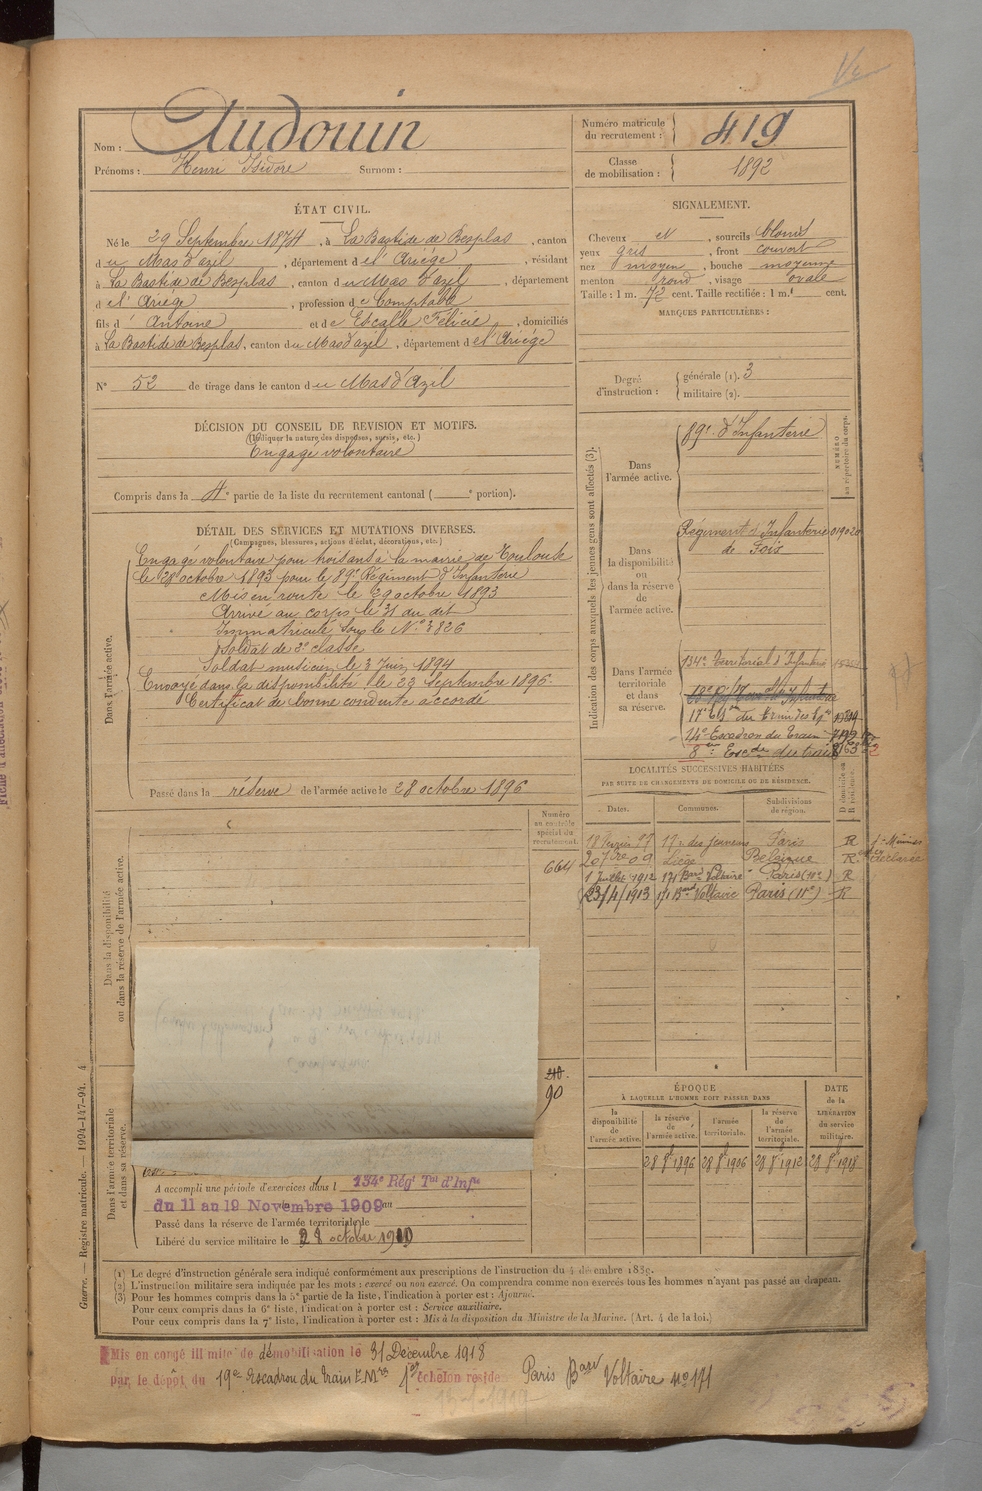 Nom : Audouin
Prénoms : Henri Isidore Surnom :
Numéro matricule du recrutement : 419
Classe de mobilisation : 1892
ÉTAT CIVIL.
Né le 29 Septembre 1874, à La Bastide de Besplas, canton
du Mas d'azil, département de l'Ariège, résidant
à La Bastide de Besplas, canton du Mas d'azil, département
d el' Ariège, profession de Comptable
fils d' Antoine et de Escalle Félicie, domiciliés
à La Bastide de Besplas, canton du Mas d'azil, département d el' Ariège
N° 52 de tirage dans le canton du Mas d'Azil
SIGNALEMENT.
Cheveux N, sourcils blonds
yeux gris, front couvert
nez moyen, bouche moyenne
menton rond, visage ovale
Taille : 1 m. 72 cent. Taille rectifiée : 1 m. cent.
MARQUES PARTICULIÈRES :
Degré d'instruction : générale (1). 3
militaire (2).
DÉCISION DU CONSEIL DE REVISION ET MOTIFS.
(Indiquer la nature des dispenses, sursis, etc.)
Engagé volontaire
Compris dans la 4e partie de la liste du recrutement cantonal ( e portion).
DÉTAIL DES SERVICES ET MUTATIONS DIVERSES.
(Campagnes, blessures, actions d'éclat, décorations, etc.)
Dans l'armée active.
Engagé volontaire pour trois ans à la mairie de Toulouse
le 28 octobre 1893 pour le 89e Régiment d'Infanterie
Mis en route le 29 octobre 1893
Arrivé au corps le 31 du dit
Immatriculé sous le N° 3826
Soldat de 2e classe
Soldat musicien le 3 Juin 1894
Envoyé dans la disponibilité le 23 Septembre 1896.
Certificat de bonne conduite accordé
Passé dans la réserve de l'armée active le 28 octobre 1896
Indication des corps auxquels les jeunes gens sont affectés (3).
NUMÉRO au répertoire du corps.
Dans l'armée active.
89e d'Infanterie
Dans la disponibilité ou dans la réserve de l'armée active.
Régiment d'Infanterie 019020
de Foix
Dans l'armée territoriale et dans sa réserve.
134e Territorial d'Infanterie
17e Esqon du Train des Eqes
14e Escadron du Train
8e Escdon du train
LOCALITÉS SUCCESSIVES HABITÉES
PAR SUITE DE CHANGEMENTS DE DOMICILE OU DE RÉSIDENCE.
Dates. Communes. Subdivisions de région. D domicile ou R résidence.
18 février 97 19 r. des jeuneurs Paris R
20 7bre 09 Liège Belgique R
1 Juillet 1912 171 Bard Voltaire Paris (XIe) R
23/4/1913 171 Bard Voltaire Paris (XIe) R
Numéro au contrôle spécial du recrutement.
664
Dans la disponibilité ou dans la réserve de l'armée active.
210.
90
Dans l'armée territoriale et dans sa réserve.
A accompli une période d'exercices dans l 134e Régt Tal d'Infie
du 11 au 19 Novembre 1909 au
Passé dans la réserve de l'armée territoriale le
Libéré du service militaire le 28 octobre 1910
ÉPOQUE
À LAQUELLE L'HOMME DOIT PASSER DANS
DATE de la LIBÉRATION du service militaire.
la disponibilité de l'armée active. la réserve de l'armée active. l'armée territoriale. la réserve de l'armée territoriale.
28 8bre 1896 28 8bre 1906 28 8bre 1912 28 8bre 1918
(1) Le degré d'instruction générale sera indiqué conformément aux prescriptions de l'instruction du 4 décembre 1889.
(2) L'instruction militaire sera indiquée par les mots : exercé ou non exercé. On comprendra comme non exercés tous les hommes n'ayant pas passé au drapeau.
(3) Pour les hommes compris dans la 5e partie de la liste, l'indication à porter est : Ajourné.
Pour ceux compris dans la 6e liste, l'indication à porter est : Service auxiliaire.
Pour ceux compris dans la 7e liste, l'indication à porter est : Mis à la disposition du Ministre de la Marine. (Art. 4 de la loi.)
Guerre. — Registre matricule. — 1994-147-94. 4
Mis en congé illimité de démobilisation le 31 Décembre 1918
par le dépôt du 19e Escadron du Train E.Mres 1er échelon réside Paris Bard Voltaire no 171